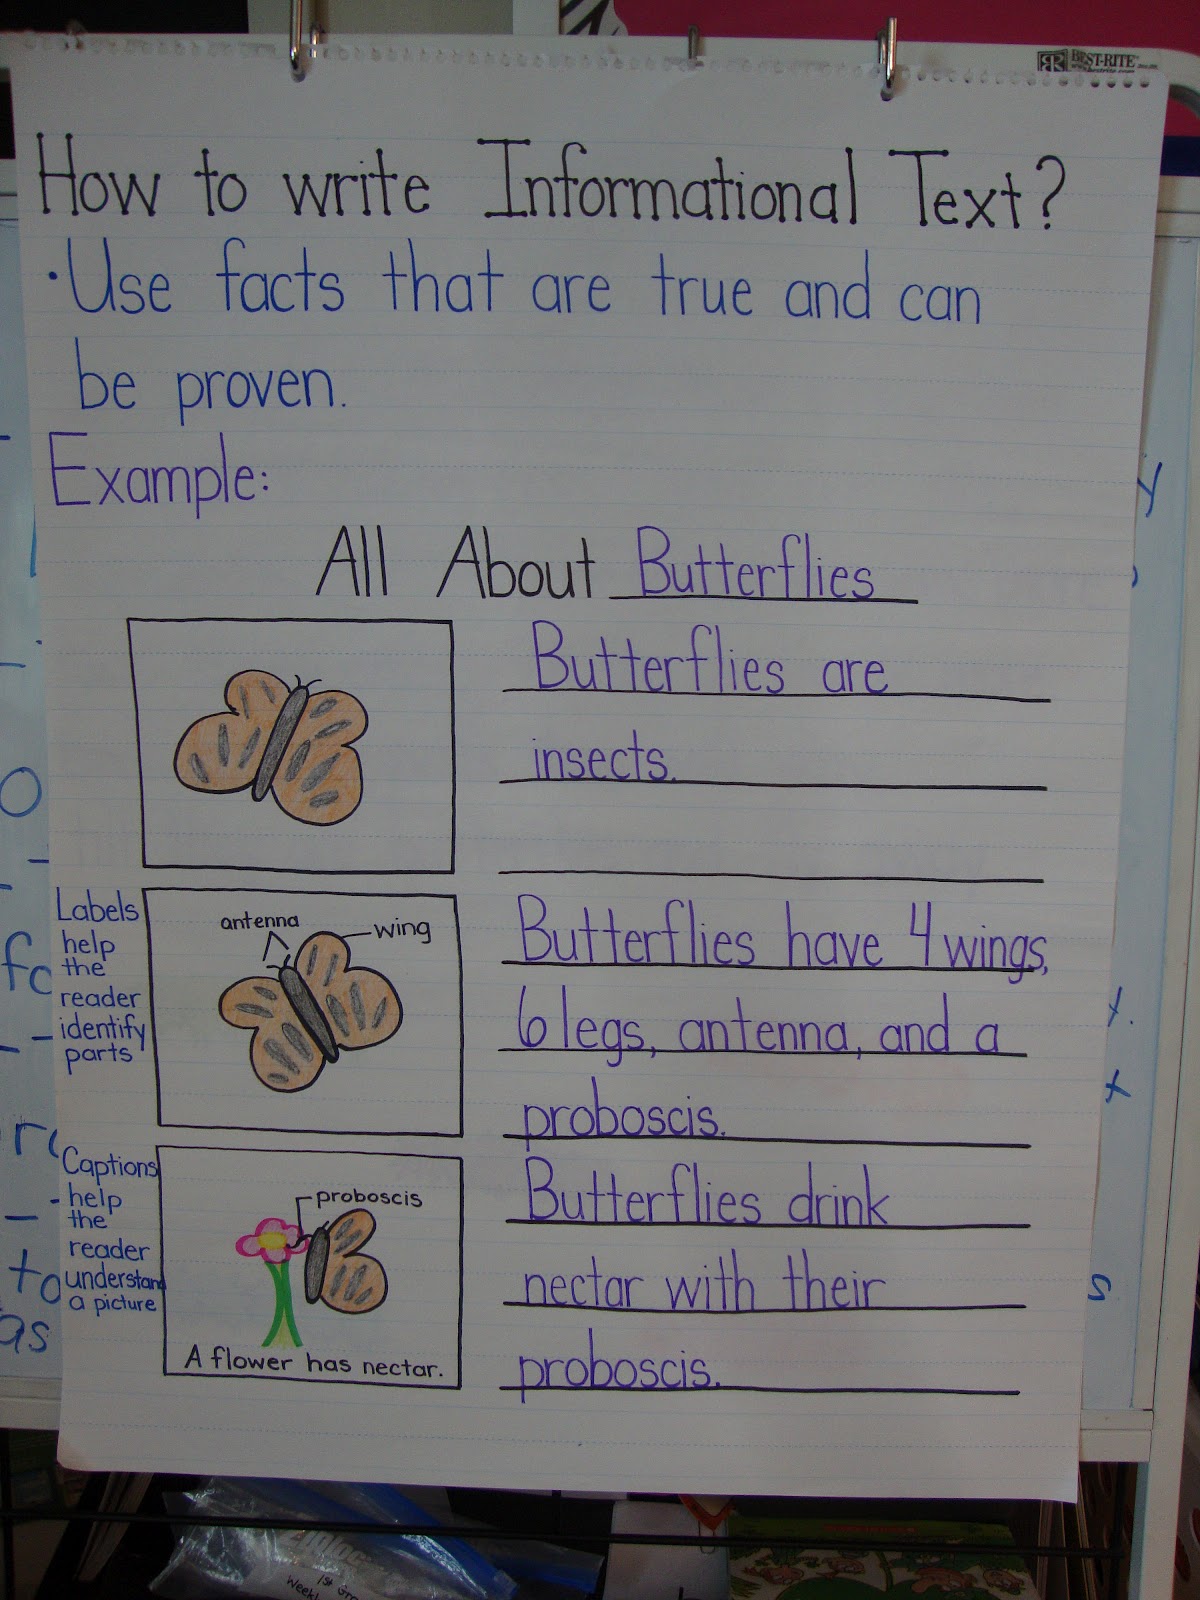 BEST-RITE
How to write Informational Text?
• Use facts that are true and can
be proven.
Example:
All About Butterflies
Butterflies are
insects.
Labels
help
the
reader
identify
parts
antenna
wing
Butterflies have 4 wings,
6 legs, antenna, and a
proboscis.
Captions
help
the
reader
understand
a picture
proboscis
A flower has nectar.
Butterflies drink
nectar with their
proboscis.